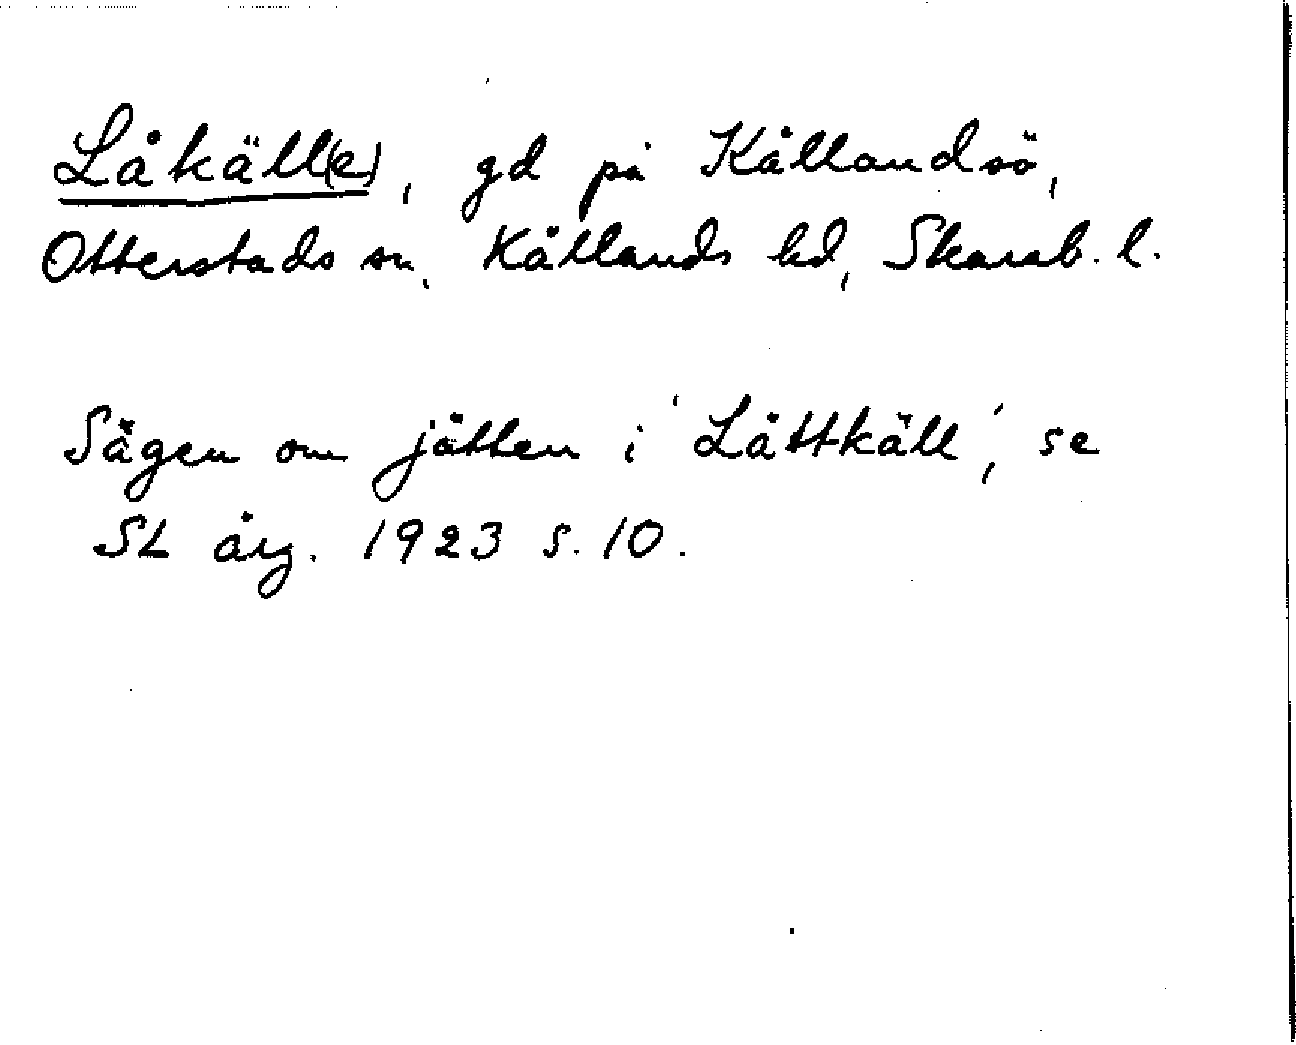 Låkäll(e), gd på Kållandsö,
Otterstads sn, Kållands hd, Skarab. l.
Sägen om jätten i 'Låttkäll', se
SL årg. 1923 s. 10.